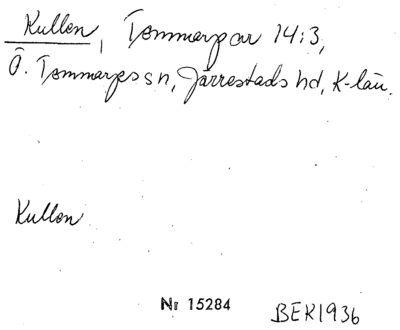 Kullen, Tommarpar 14:3,
Ö. Tommarps sn, Järrestads hd, K-län.
Kullen
Nr 15284
BEK1936